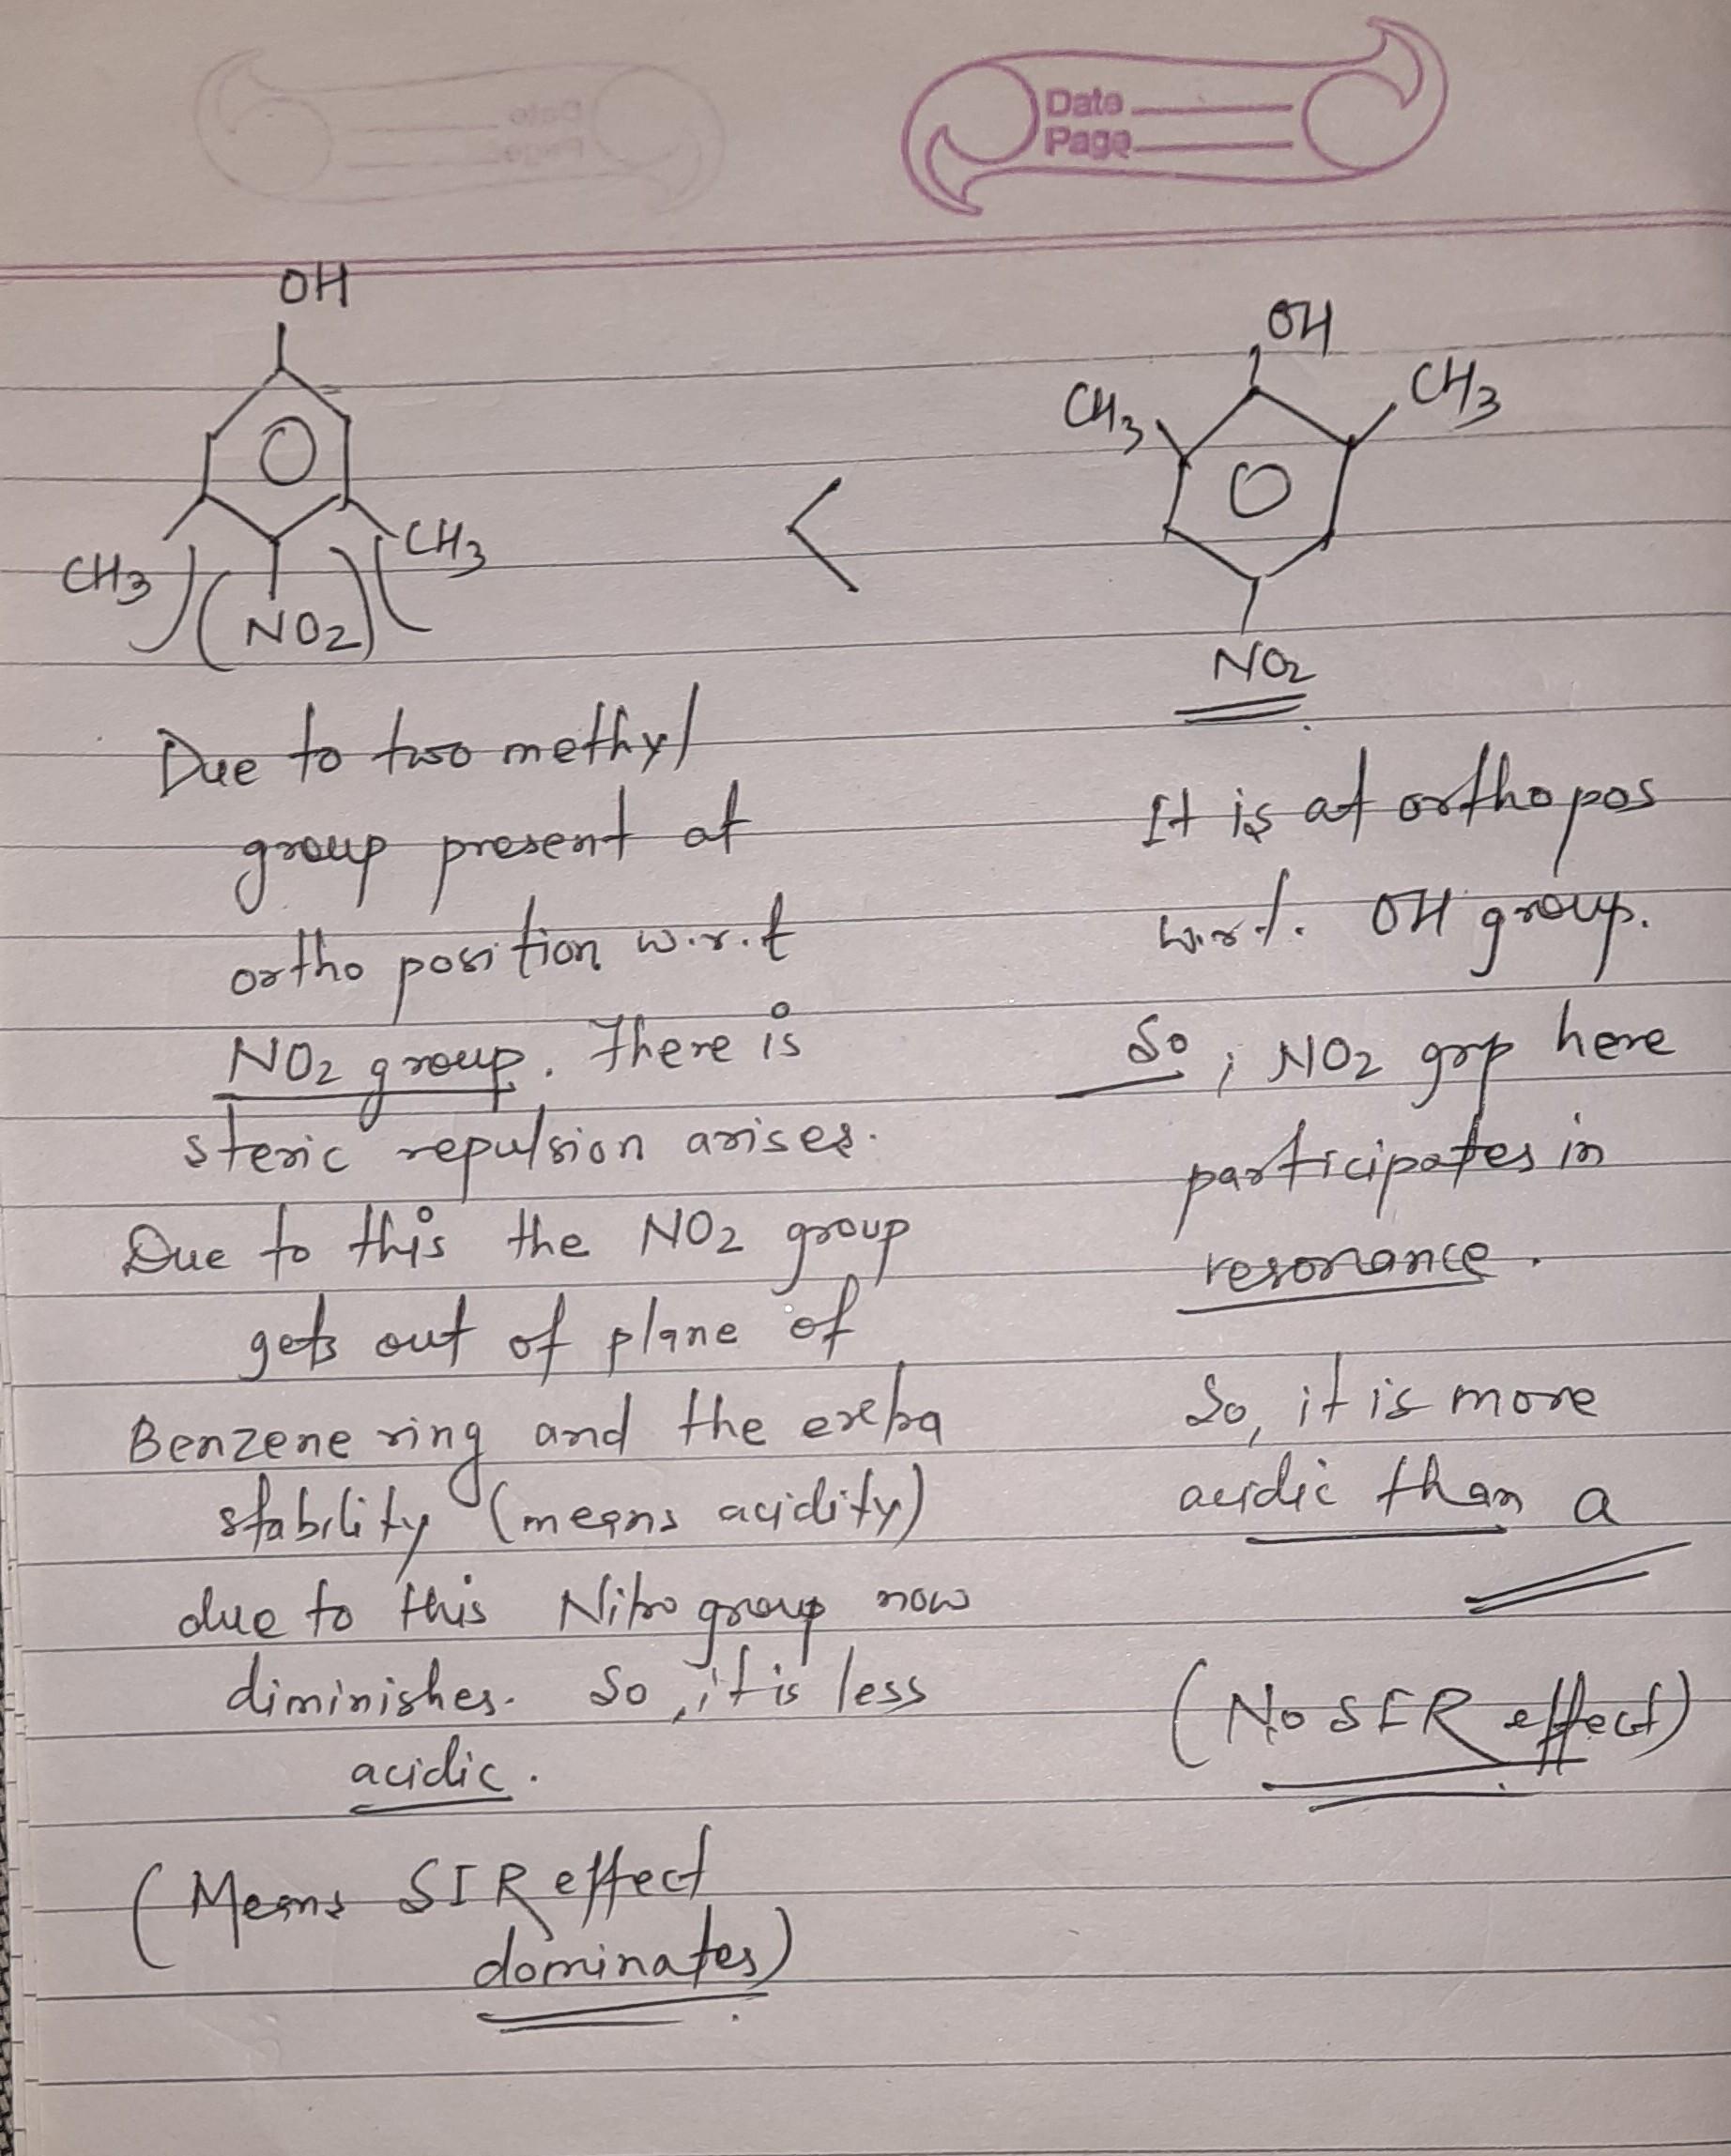 Date
Page
OH
CH3
CH3
NO2
<
OH
CH3
CH3
NO2
Due to two methyl
group present at
ortho position w.r.t
NO2 group. There is
steric repulsion arises.
Due to this the NO2 group
gets out of plane of
Benzene ring and the extra
stability (means acidity)
due to this Nitro group now
diminishes. So, it is less
acidic.
(Means SIR effect
dominates)
It is at ortho pos
w.r.t. OH group.
So, NO2 grp here
participates in
resonance.
So, it is more
acidic than a
(No SIR effect)